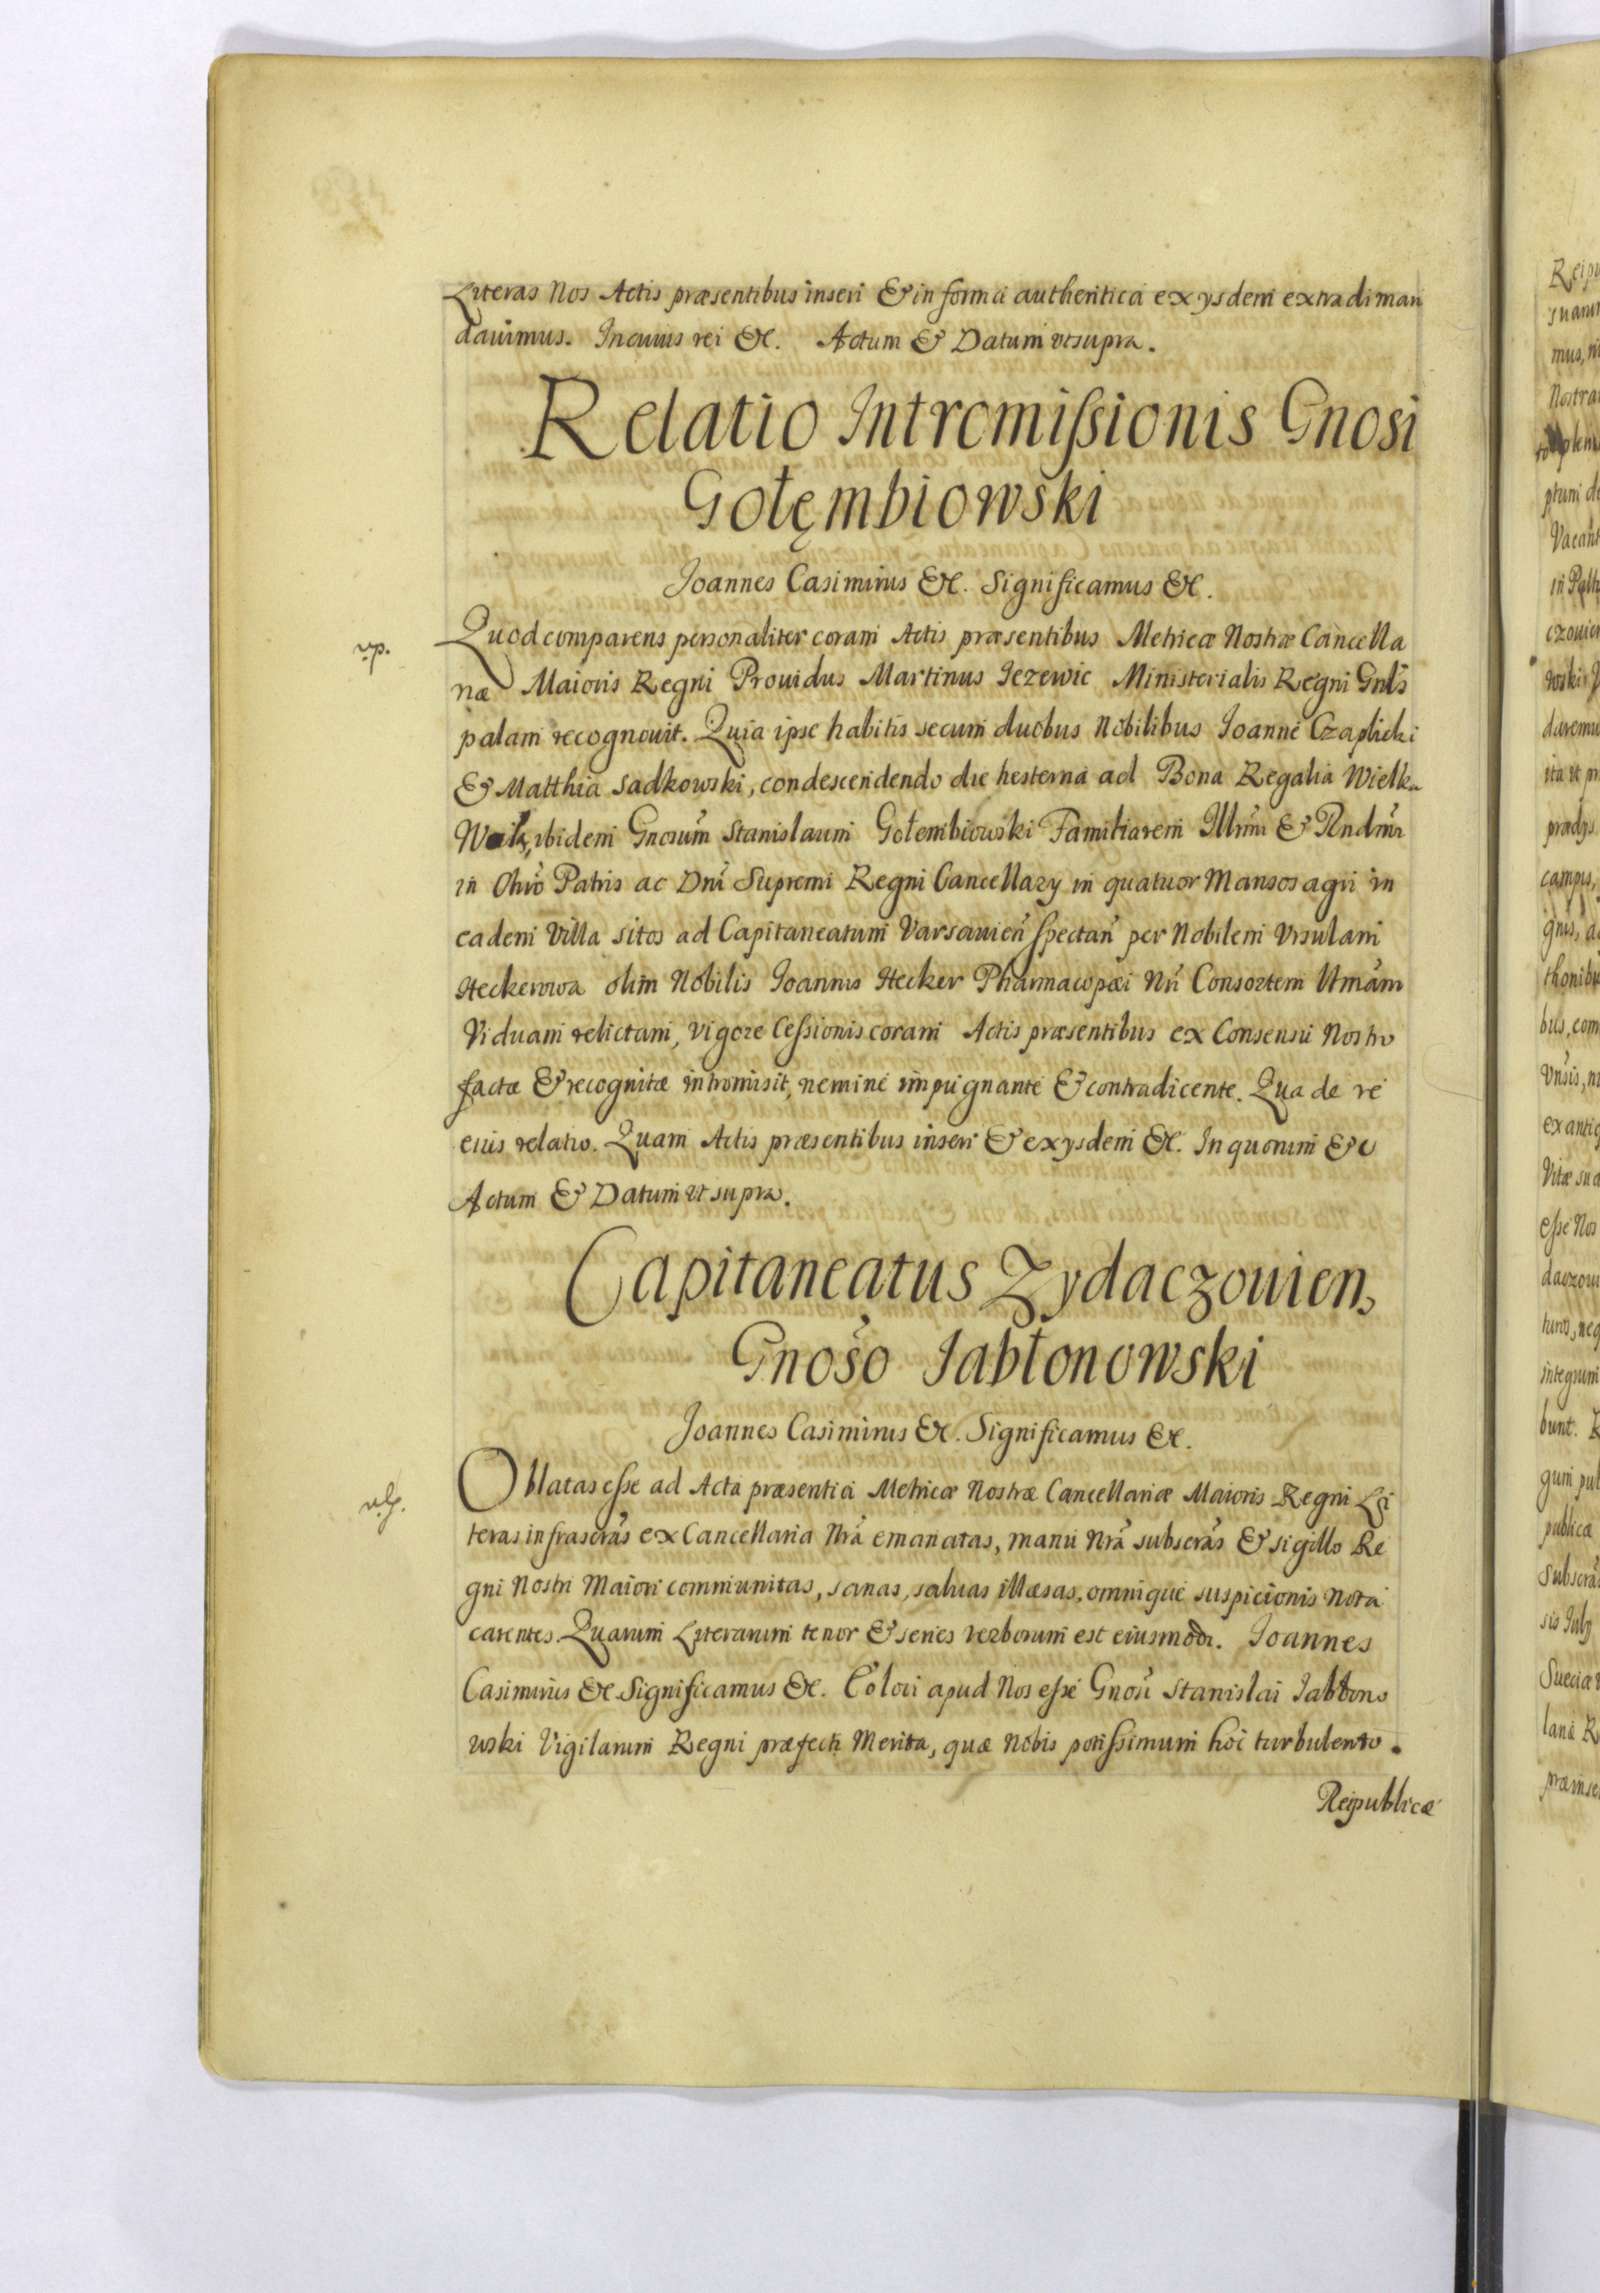 Literas Nos Actis præsentibus inseri & in forma authentica ex ysdem extradi man
davimus. In cuius rei &c. Actum & Datum vt supra.
Relatio Intromißionis Gnosi
Gołęmbiowski
Joannes Casimirus &c. Significamus &c.
vp. Quod comparens personaliter coram Actis præsentibus Metricæ Nostræ Cancella
riæ Maioris Regni Prouidus Martinus Jezewic Ministerialis Regni Gnlis
palam recognouit. Quia ipse habitis secum duobus Nobilibus Joanne Czaplicki
& Matthia Sadkowski, condescendendo die hesterna ad Bona Regalia Wielka
ibidem Gnosum Stanislaum Gołembiowski Familiarem Illrm̃ & Rndm̃
in Chro Patris ac Dni Supremi Regni Cancellarÿ in quatuor Mansos agri in
eadem Villa sitos ad Capitaneatum Varsauien̄ spectan̄ per Nobilem Vrsulam
Heckerowa olim Nobilis Joannis Hecker Pharmacopæi Nri Consortem
Viduam relictam, vigore Ceßionis coram Actis præsentibus ex Consensu Nostro
factæ & recognitæ intromisit, nemine impugnante & contradicente. Qua de re
eius relatio. Quam Actis præsentibus inseri & ex ysdem &c. In quorum &c
Actum & Datum vt supra.
Capitaneatus Zydaczouien,
Gnoso Jabłonowski
Joannes Casimirus &c. Significamus &c.
Oblatas eße ad Acta præsentia Metricæ Nostræ Cancellariæ Maioris Regni Li
teras infrascras ex Cancellaria Nra emanatas, manu Nra subscras & sigillo Re
gni Nostri Maiori communitas, sanas, saluas illæsas, omnique suspicionis nota
carentes. Quarum Literarum tenor & series verborum est eiusmodi. Joannes
Casimirus &c Significamus &c. Coloci apud Nos eße Gnosi Stanislai Jabłono
wski Vigilarum Regni præfecti Merita, quæ Nobis potißimum hoc turbulento.
Reipublicæ